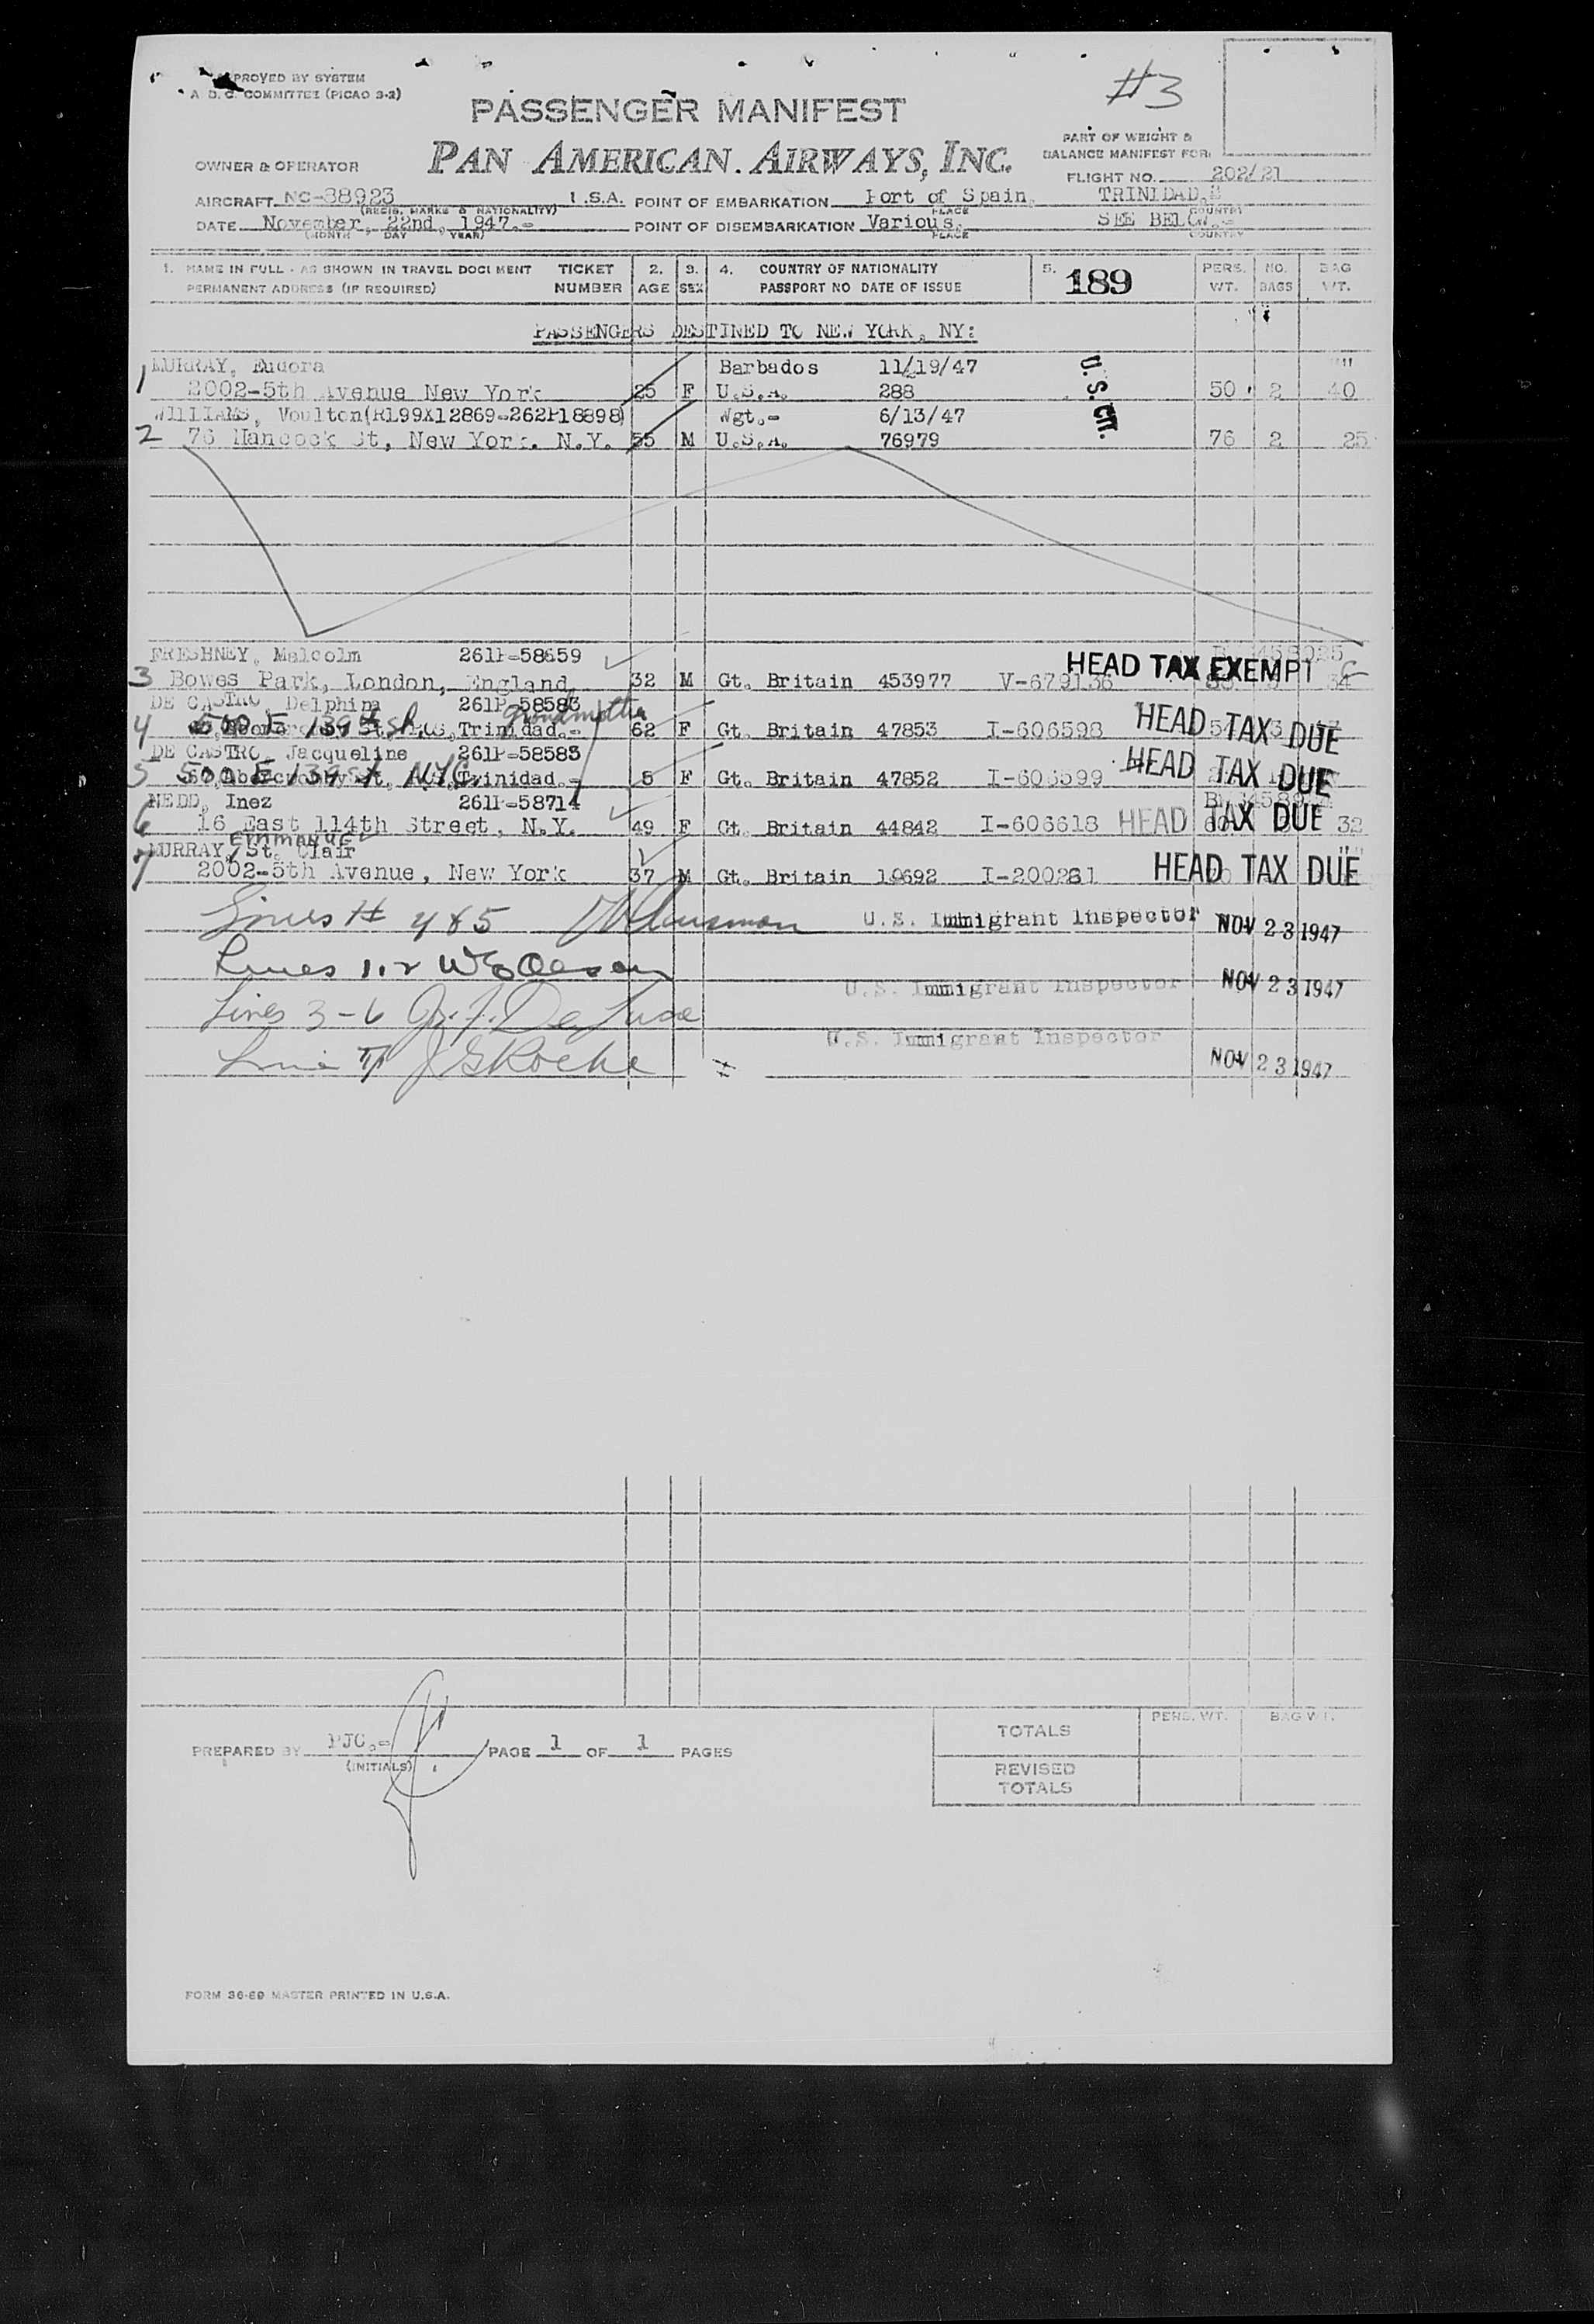 PROVED BY SYSTEM
COMMITTEE (PICAO 3-2)
#3
PASSENGER MANIFEST
PAN AMERICAN AIRWAYS, INC.
PART OF WEIGHT &
BALANCE MANIFEST FOR:
OWNER & OPERATOR
FLIGHT NO. 202/21
AIRCRAFT NC-88923 U.S.A. POINT OF EMBARKATION Port of Spain, TRINIDAD,
(REGIS. MARKS & NATIONALITY) PLACE COUNTRY
DATE November, 22nd, 1947.- POINT OF DISEMBARKATION Various. SEE BELOW.-
(MONTH DAY YEAR) PLACE COUNTRY
1. NAME IN FULL - AS SHOWN IN TRAVEL DOCUMENT TICKET 2. 3. 4. COUNTRY OF NATIONALITY 5. 189 PERS. NO. BAG
PERMANENT ADDRESS (IF REQUIRED) NUMBER AGE SEX PASSPORT NO DATE OF ISSUE WT. BAGS WT.
PASSENGERS DESTINED TO NEW YORK, NY:
1 MURRAY, Eudora Barbados 11/19/47
2002-5th Avenue New York 25 F U.S.A. 288 U.S. CIT. 50 2 40
WILLIAMS, Voulton(R199X12869-262P18898) Wgt.- 6/13/47
2 76 Hancock St, New York. N.Y. 55 M U.S.A. 76979 76 2 25
FRESHNEY, Malcolm 261P-58659
3 Bowes Park, London, England 32 M Gt. Britain 453977 V-679136 HEAD TAX EXEMPT
DE CASTRO, Delphina 261P-58583 Grandmother
4 500 E 139th St Trinidad.- 62 F Gt. Britain 47853 I-606598 HEAD TAX DUE
DE CASTRO, Jacqueline 261P-58583
5 500 E 139 St NYC Trinidad.- 5 F Gt. Britain 47852 I-606599 HEAD TAX DUE
NEDD, Inez 261P-58714
6 16 East 114th Street, N.Y. 49 F Gt. Britain 44842 I-606618 HEAD TAX DUE 32
Emmanuel
MURRAY, St. Clair
7 2002-5th Avenue, New York 37 M Gt. Britain 10692 I-200281 HEAD TAX DUE
Lines # 4 & 5 U.S. Immigrant Inspector NOV 23 1947
Lines 1.2 U.S. Immigrant Inspector NOV 23 1947
Lines 3-6
Line 7 J G Roche U.S. Immigrant Inspector NOV 23 1947
PREPARED BY PJC.- PAGE 1 OF 1 PAGES
(INITIALS)
PERS. WT. BAG WT.
TOTALS
REVISED
TOTALS
FORM 36-69 MASTER PRINTED IN U.S.A.